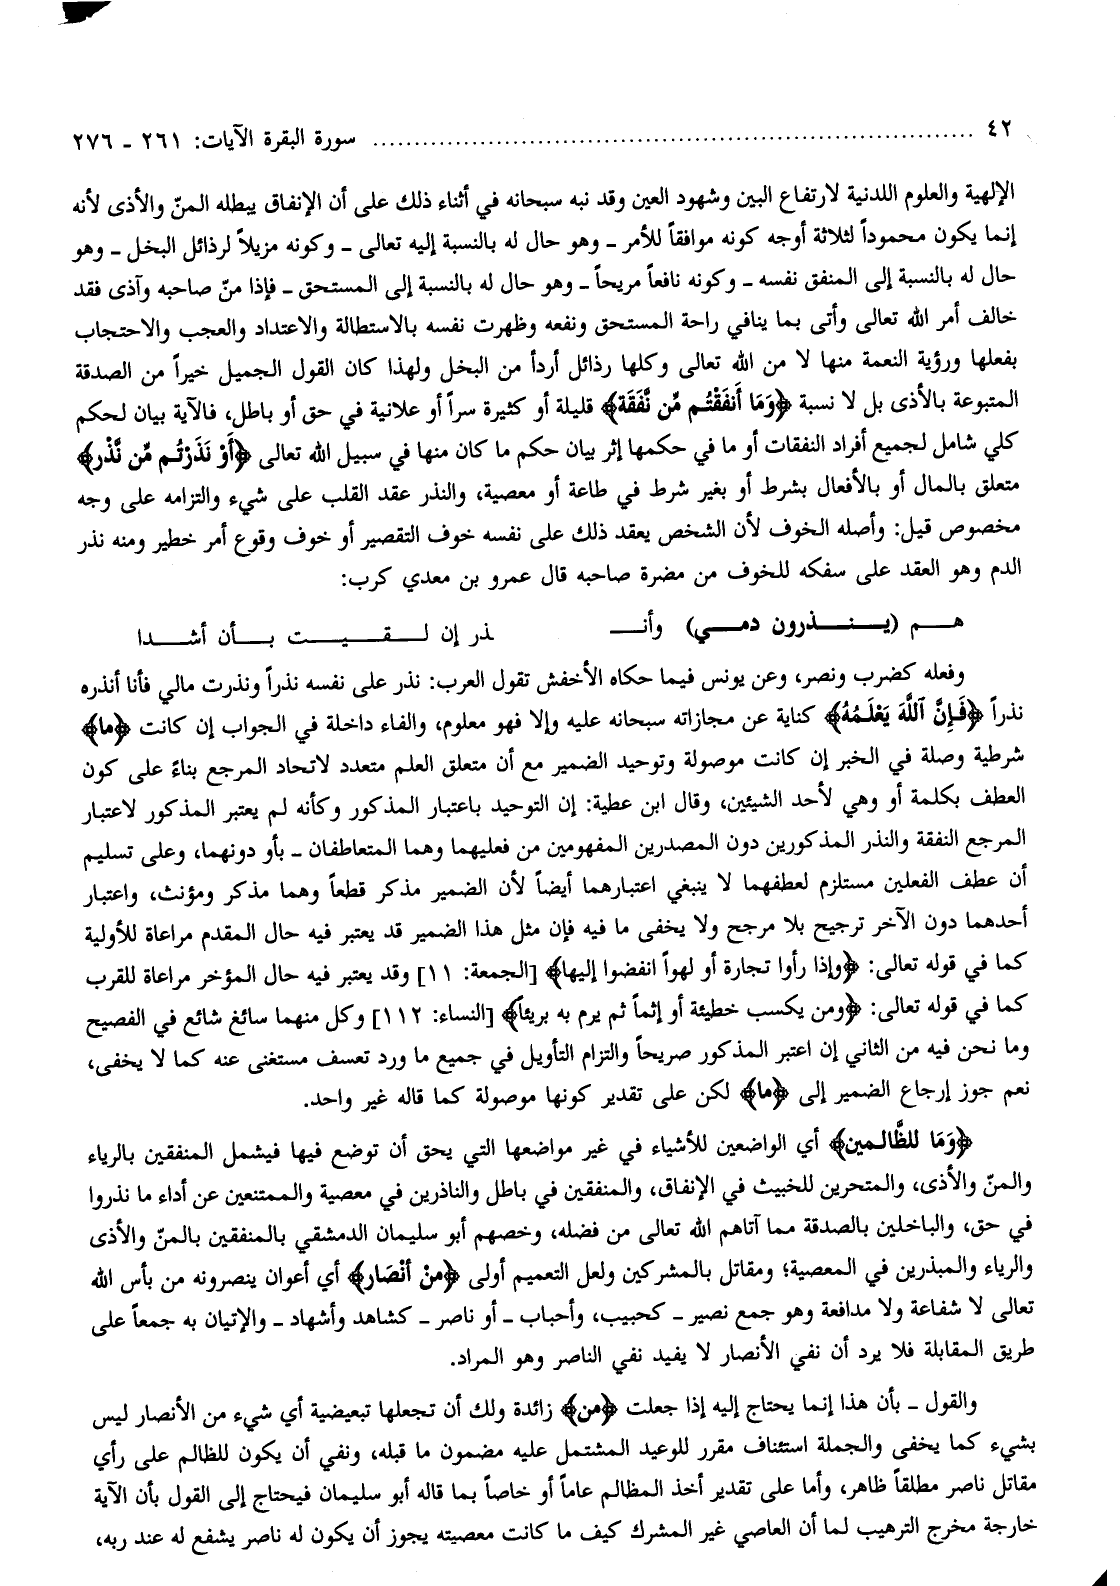 ٤٢ ........................................ سورة البقرة الآيات: ٢٦١ ـ ٢٧٦
الإلهية والعلوم اللدنية لارتفاع البين وشهود العين وقد نبه سبحانه في أثناء ذلك على أن الإنفاق يبطله المنّ والأذى لأنه
إنما يكون محموداً لثلاثة أوجه كونه موافقاً للأمر ـ وهو حال له بالنسبة إليه تعالى ـ وكونه مزيلاً لرذائل البخل ـ وهو
حال له بالنسبة إلى المنفق نفسه ـ وكونه نافعاً مريحاً ـ وهو حال له بالنسبة إلى المستحق ـ فإذا منّ صاحبه وآذى فقد
خالف أمر الله تعالى وأتى بما ينافي راحة المستحق ونفعه وظهرت نفسه بالاستطالة والاعتداد والعجب والاحتجاب
بفعلها ورؤية النعمة منها لا من الله تعالى وكلها رذائل أردأ من البخل ولهذا كان القول الجميل خيراً من الصدقة
المتبوعة بالأذى بل لا نسبة ﴿وَمَا أَنفَقْتُم مِّن نَّفَقَة﴾ قليلة أو كثيرة سراً أو علانية في حق أو باطل، فالآية بيان لحكم
كلي شامل لجميع أفراد النفقات أو ما في حكمها إثر بيان حكم ما كان منها في سبيل الله تعالى ﴿أَوْ نَذَرْتُم مِّن نَّذْر﴾
متعلق بالمال أو بالأفعال بشرط أو بغير شرط في طاعة أو معصية، والنذر عقد القلب على شيء والتزامه على وجه
مخصوص قيل: وأصله الخوف لأن الشخص يعقد ذلك على نفسه خوف التقصير أو خوف وقوع أمر خطير ومنه نذر
الدم وهو العقد على سفكه للخوف من مضرة صاحبه قال عمرو بن معدي كرب:
هـــم (يـــنـــذرون دمـــي) وأنـــ ـــذر إن لـــقـــيـــت بـــأن أشـــدا
وفعله كضرب ونصر، وعن يونس فيما حكاه الأخفش تقول العرب: نذر على نفسه نذراً ونذرت مالي فأنا أنذره
نذراً ﴿فَإِنَّ ٱللَّهَ يَعْلَمُهُ﴾ كناية عن مجازاته سبحانه عليه وإلا فهو معلوم، والفاء داخلة في الجواب إن كانت ﴿ما﴾
شرطية وصلة في الخبر إن كانت موصولة وتوحيد الضمير مع أن متعلق العلم متعدد لاتحاد المرجع بناءً على كون
العطف بكلمة أو وهي لأحد الشيئين، وقال ابن عطية: إن التوحيد باعتبار المذكور وكأنه لم يعتبر المذكور لاعتبار
المرجع النفقة والنذر المذكورين دون المصدرين المفهومين من فعليهما وهما المتعاطفان ـ بأو دونهما، وعلى تسليم
أن عطف الفعلين مستلزم لعطفهما لا ينبغي اعتبارهما أيضاً لأن الضمير مذكر قطعاً وهما مذكر ومؤنث، واعتبار
أحدهما دون الآخر ترجيح بلا مرجح ولا يخفى ما فيه فإن مثل هذا الضمير قد يعتبر فيه حال المقدم مراعاة للأولية
كما في قوله تعالى: ﴿وإذا رأوا تجارة أو لهواً انفضوا إليها﴾ [الجمعة: ١١] وقد يعتبر فيه حال المؤخر مراعاة للقرب
كما في قوله تعالى: ﴿ومن يكسب خطيئة أو إثماً ثم يرم به بريئاً﴾ [النساء: ١١٢] وكل منهما سائغ شائع في الفصيح
وما نحن فيه من الثاني إن اعتبر المذكور صريحاً والتزام التأويل في جميع ما ورد تعسف مستغنى عنه كما لا يخفى،
نعم جوز إرجاع الضمير إلى ﴿ما﴾ لكن على تقدير كونها موصولة كما قاله غير واحد.
﴿وَمَا للظَّالمين﴾ أي الواضعين للأشياء في غير مواضعها التي يحق أن توضع فيها فيشمل المنفقين بالرياء
والمنّ والأذى، والمتحرين للخبيث في الإنفاق، والمنفقين في باطل والناذرين في معصية والممتنعين عن أداء ما نذروا
في حق، والباخلين بالصدقة مما آتاهم الله تعالى من فضله، وخصهم أبو سليمان الدمشقي بالمنفقين بالمنّ والأذى
والرياء والمبذرين في المعصية؛ ومقاتل بالمشركين ولعل التعميم أولى ﴿منْ أَنْصَار﴾ أي أعوان ينصرونه من بأس الله
تعالى لا شفاعة ولا مدافعة وهو جمع نصير ـ كحبيب، وأحباب ـ أو ناصر ـ كشاهد وأشهاد ـ والإتيان به جمعاً على
طريق المقابلة فلا يرد أن نفي الأنصار لا يفيد نفي الناصر وهو المراد.
والقول ـ بأن هذا إنما يحتاج إليه إذا جعلت ﴿من﴾ زائدة ولك أن تجعلها تبعيضية أي شيء من الأنصار ليس
بشيء كما يخفى والجملة استئناف مقرر للوعيد المشتمل عليه مضمون ما قبله، ونفي أن يكون للظالم على رأي
مقاتل ناصر مطلقاً ظاهر، وأما على تقدير أخذ المظالم عاماً أو خاصاً بما قاله أبو سليمان فيحتاج إلى القول بأن الآية
خارجة مخرج الترهيب لما أن العاصي غير المشرك كيف ما كانت معصيته يجوز أن يكون له ناصر يشفع له عند ربه،